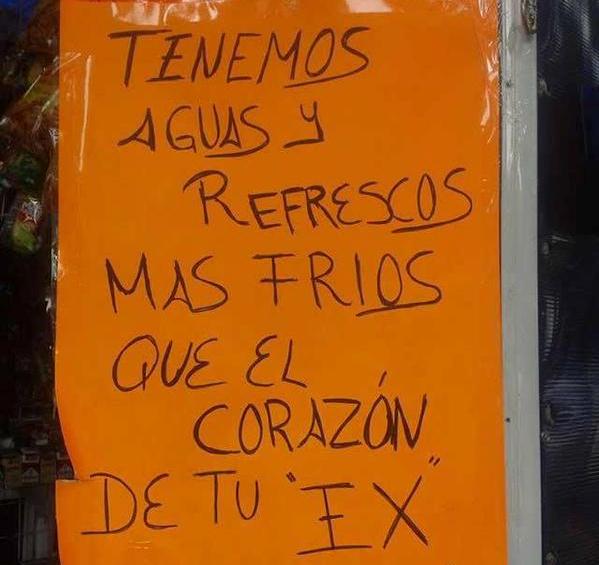 TENEMOS
AGUAS Y
REFRESCOS
MAS FRIOS
QUE EL
CORAZÓN
DE TU "EX"